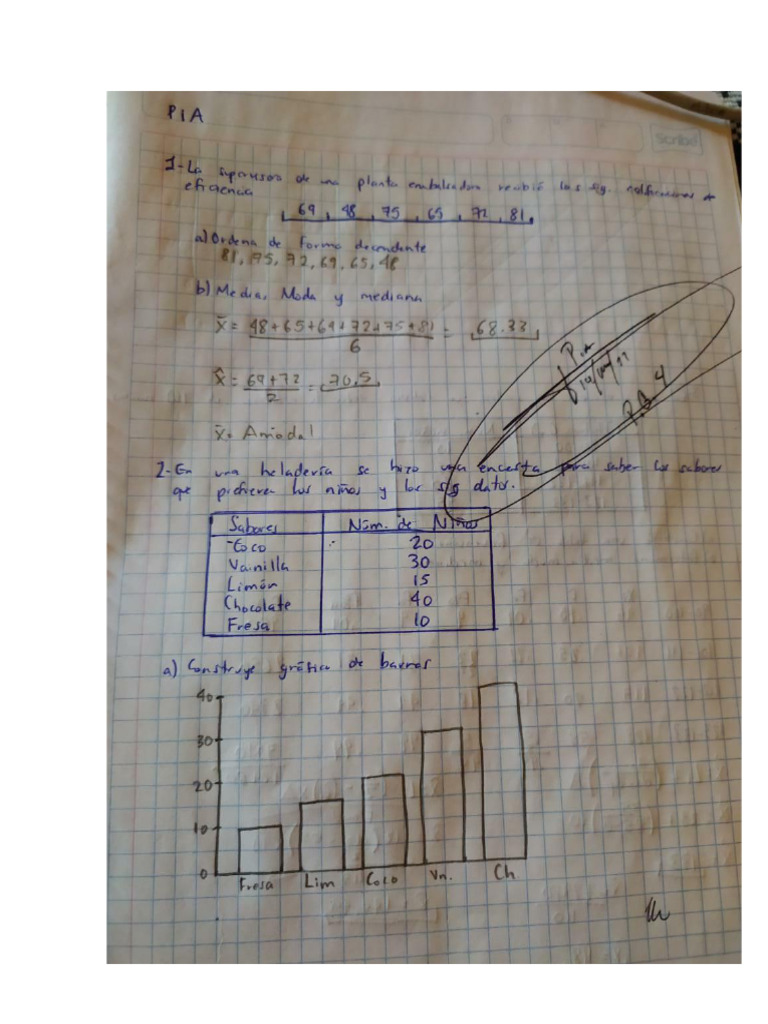 PIA
Scribe
1-La supervisora de una planta embalsadora recibió las sig. de
eficiencia
69, 48, 75, 65, 72, 81.
a) Ordena de forma decendente
81, 75, 72, 69, 65, 48
b) Media, Moda y mediana
x̄ = 48+65+69+72+75+81 = 68.33
6
x̃ = 69+72 = 70.5
2
x̂= Amodal
Pia
P.A 4
2-En una heladería se hizo una encuesta para saber los sabores
que prefieren los niños y los sig datos.
Sabores Núm. de Niños
Coco 20
Vainilla 30
Limón 15
Chocolate 40
Fresa 10
a) Construye gráfico de barras
40
30
20
10
0
Fresa Lim Coco Vn. Ch